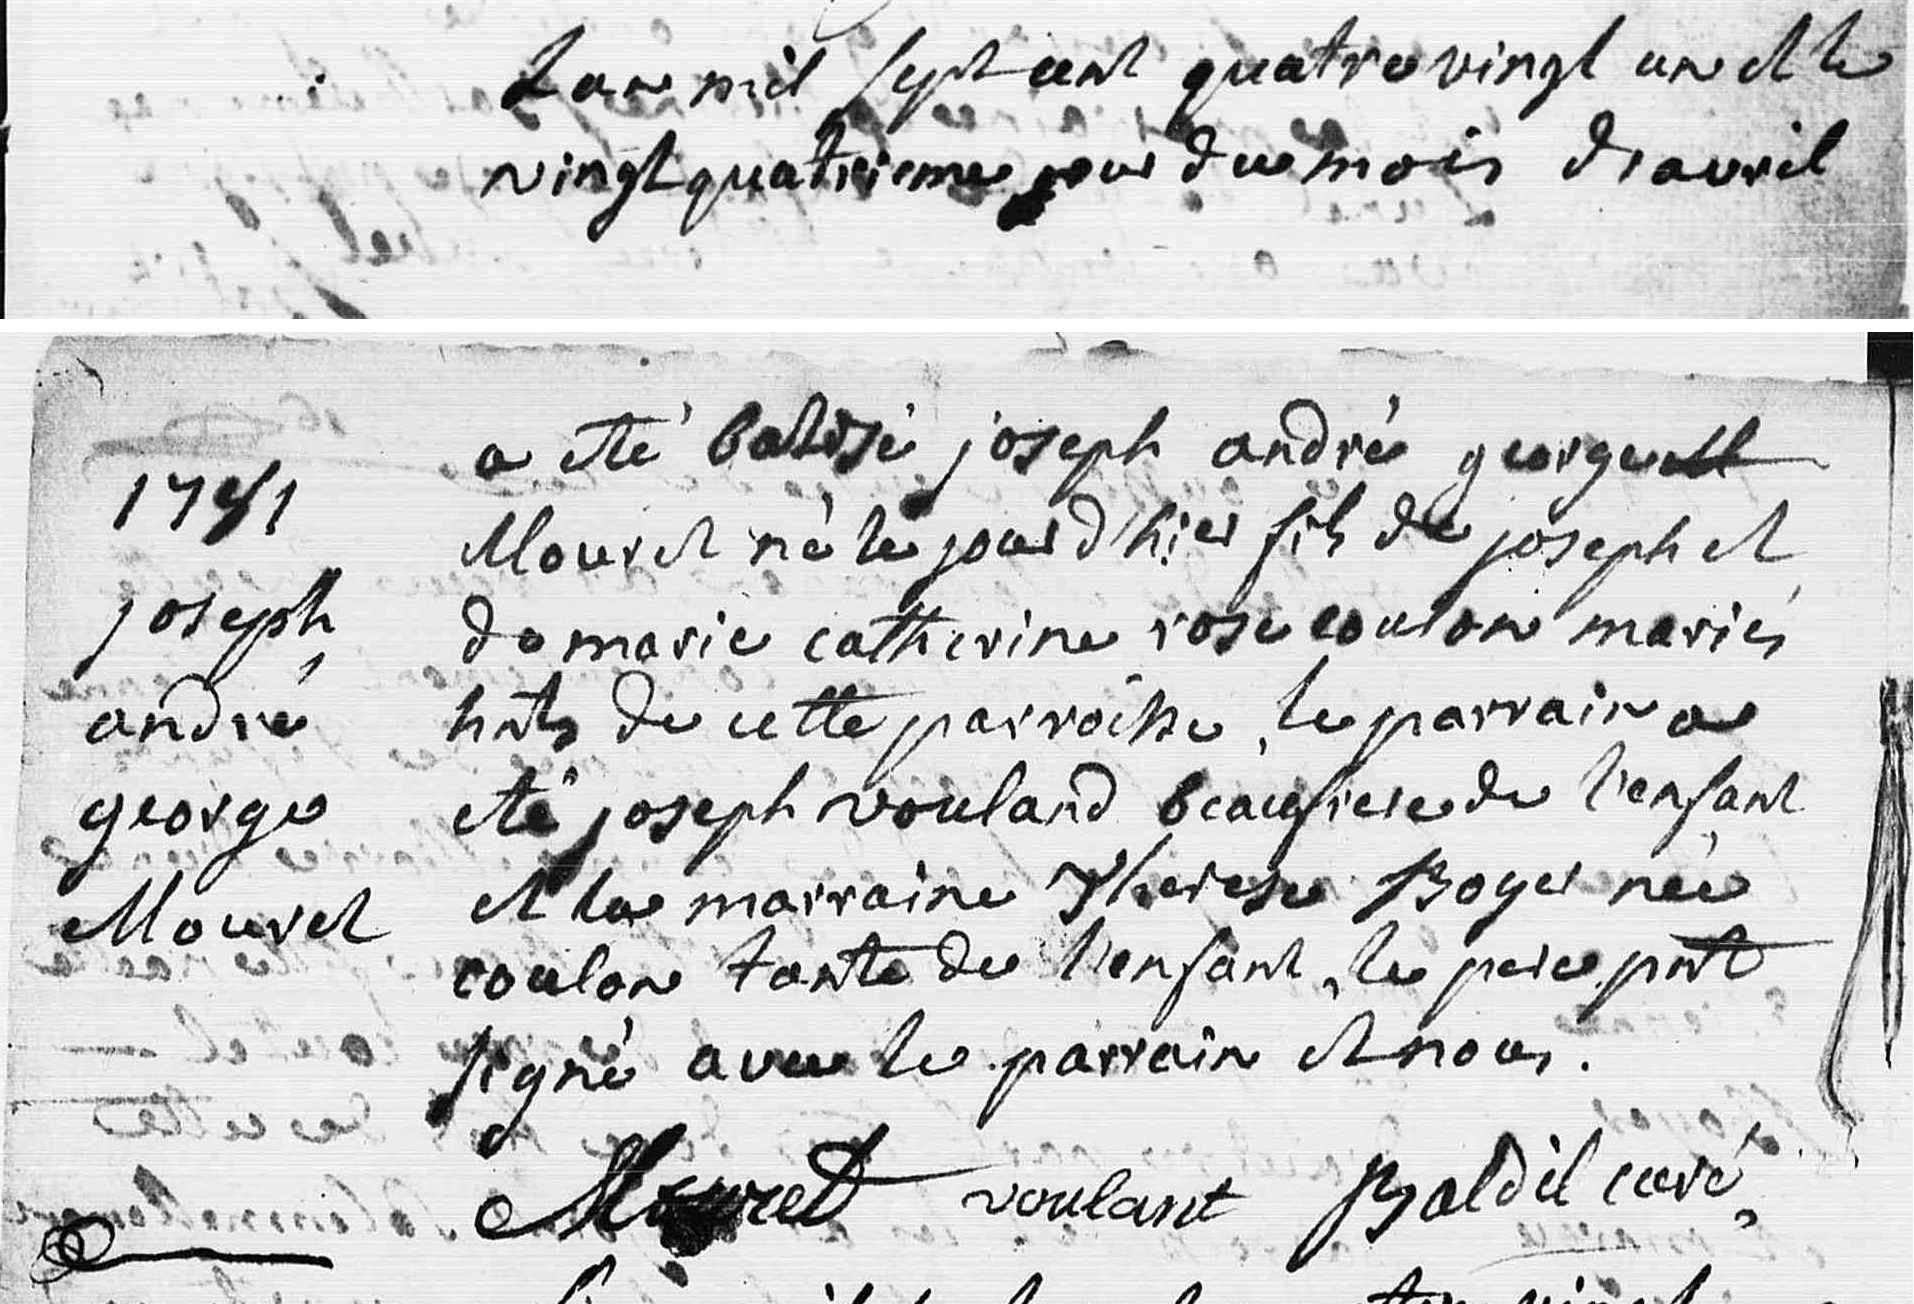 Lan mil sept cent quatre vingt un et le
vingt quatrieme jour du mois d'avril
a eté batisé joseph andré george
Mouret né le jour d'hier fils de joseph et
de marie catherine rose coulon mariés
hnts de cette parroisse, le parrain a
eté joseph vouland beaufrere de l'enfant
et la marraine Therese Boyer née
coulon tante de l'enfant, le pere pnt
signé avec le parrain et nous.
Mouret voulant Baldil curé
1781
joseph
andré
george
Mouret